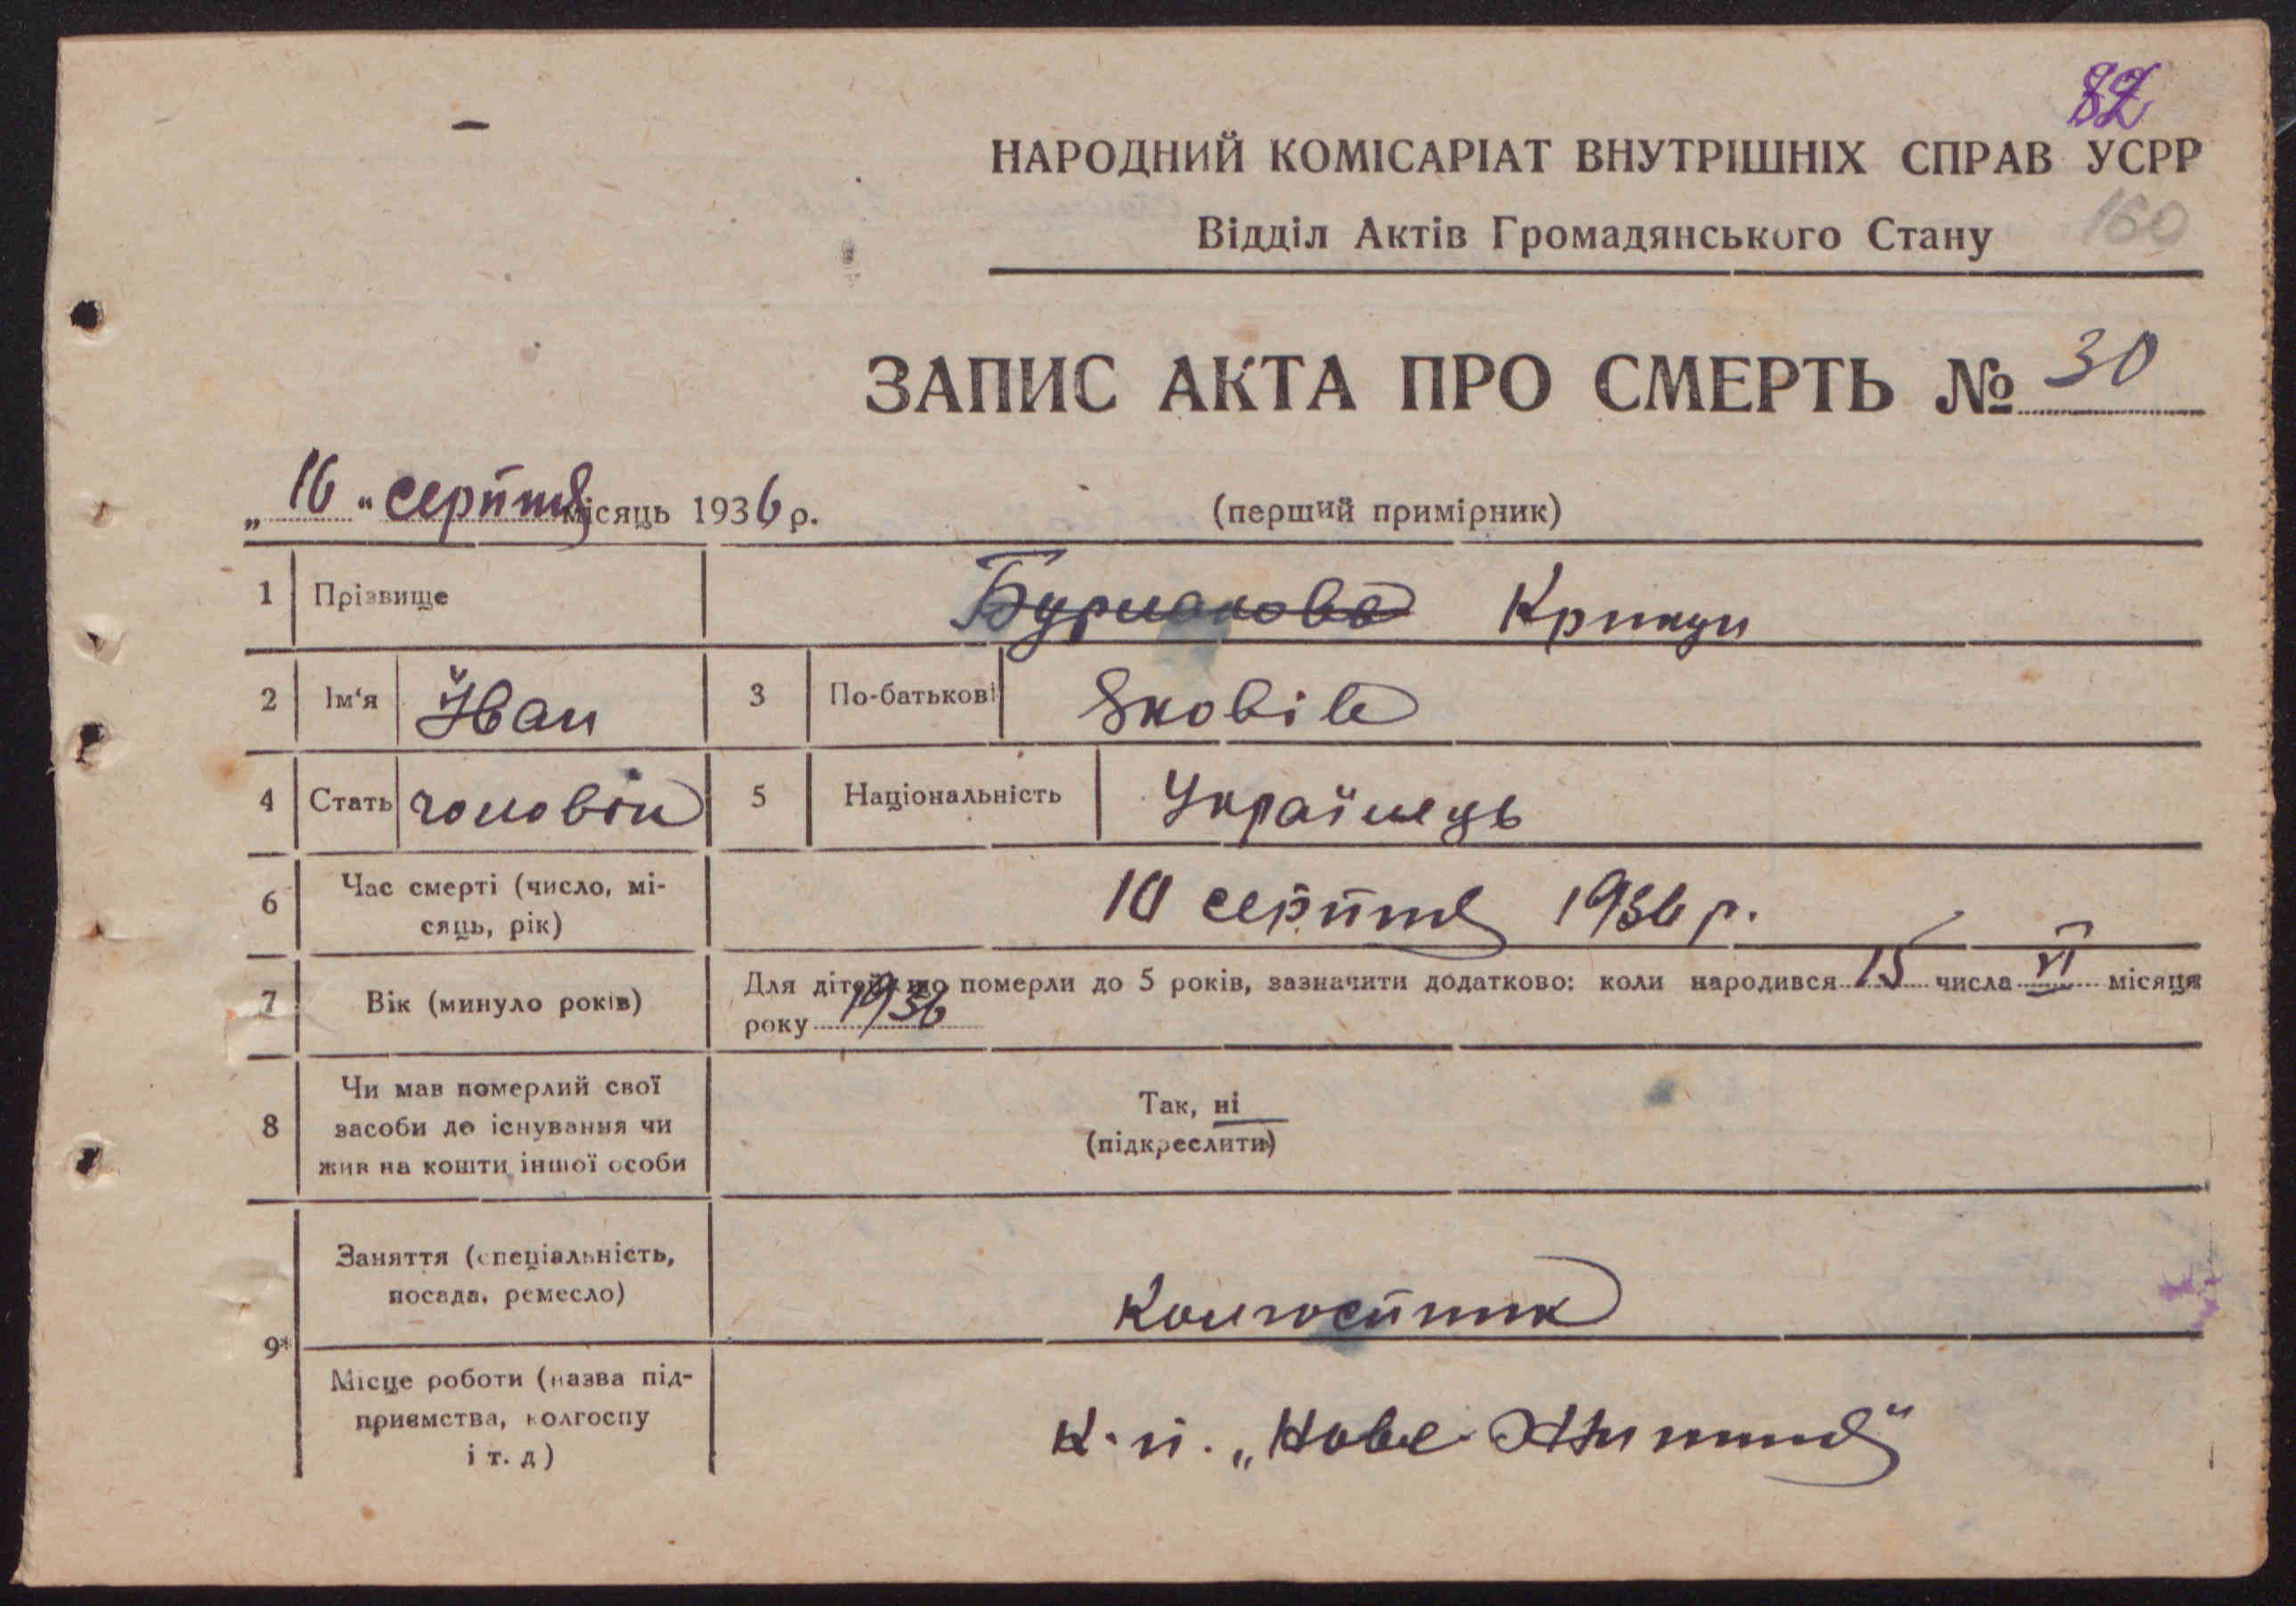 82
НАРОДНИЙ КОМІСАРІАТ ВНУТРІШНІХ СПРАВ УСРР
Відділ Актів Громадянського Стану 160
ЗАПИС АКТА ПРО СМЕРТЬ № 30
„16“ серпня місяць 1936 р. (перший примірник)
1 Прізвище
2 Ім‘я Іван 3 По-батькові
4 Стать чоловік 5 Національність Українець
6 Час смерті (число, мі-
сяць, рік) 10 серпня 1936 р.
7 Вік (минуло років) Для дітей, що померли до 5 років, зазначити додатково: коли народився 15 числа VI місяця
року 1936
8 Чи мав померлий свої
засоби до існування чи
жив на кошти іншої особи
Так, ні
(підкреслити)
9* Заняття (спеціальність,
посада, ремесло) Колгоспник
Місце роботи (назва під-
приємства, колгоспу
і т. д) „Нове Життя“